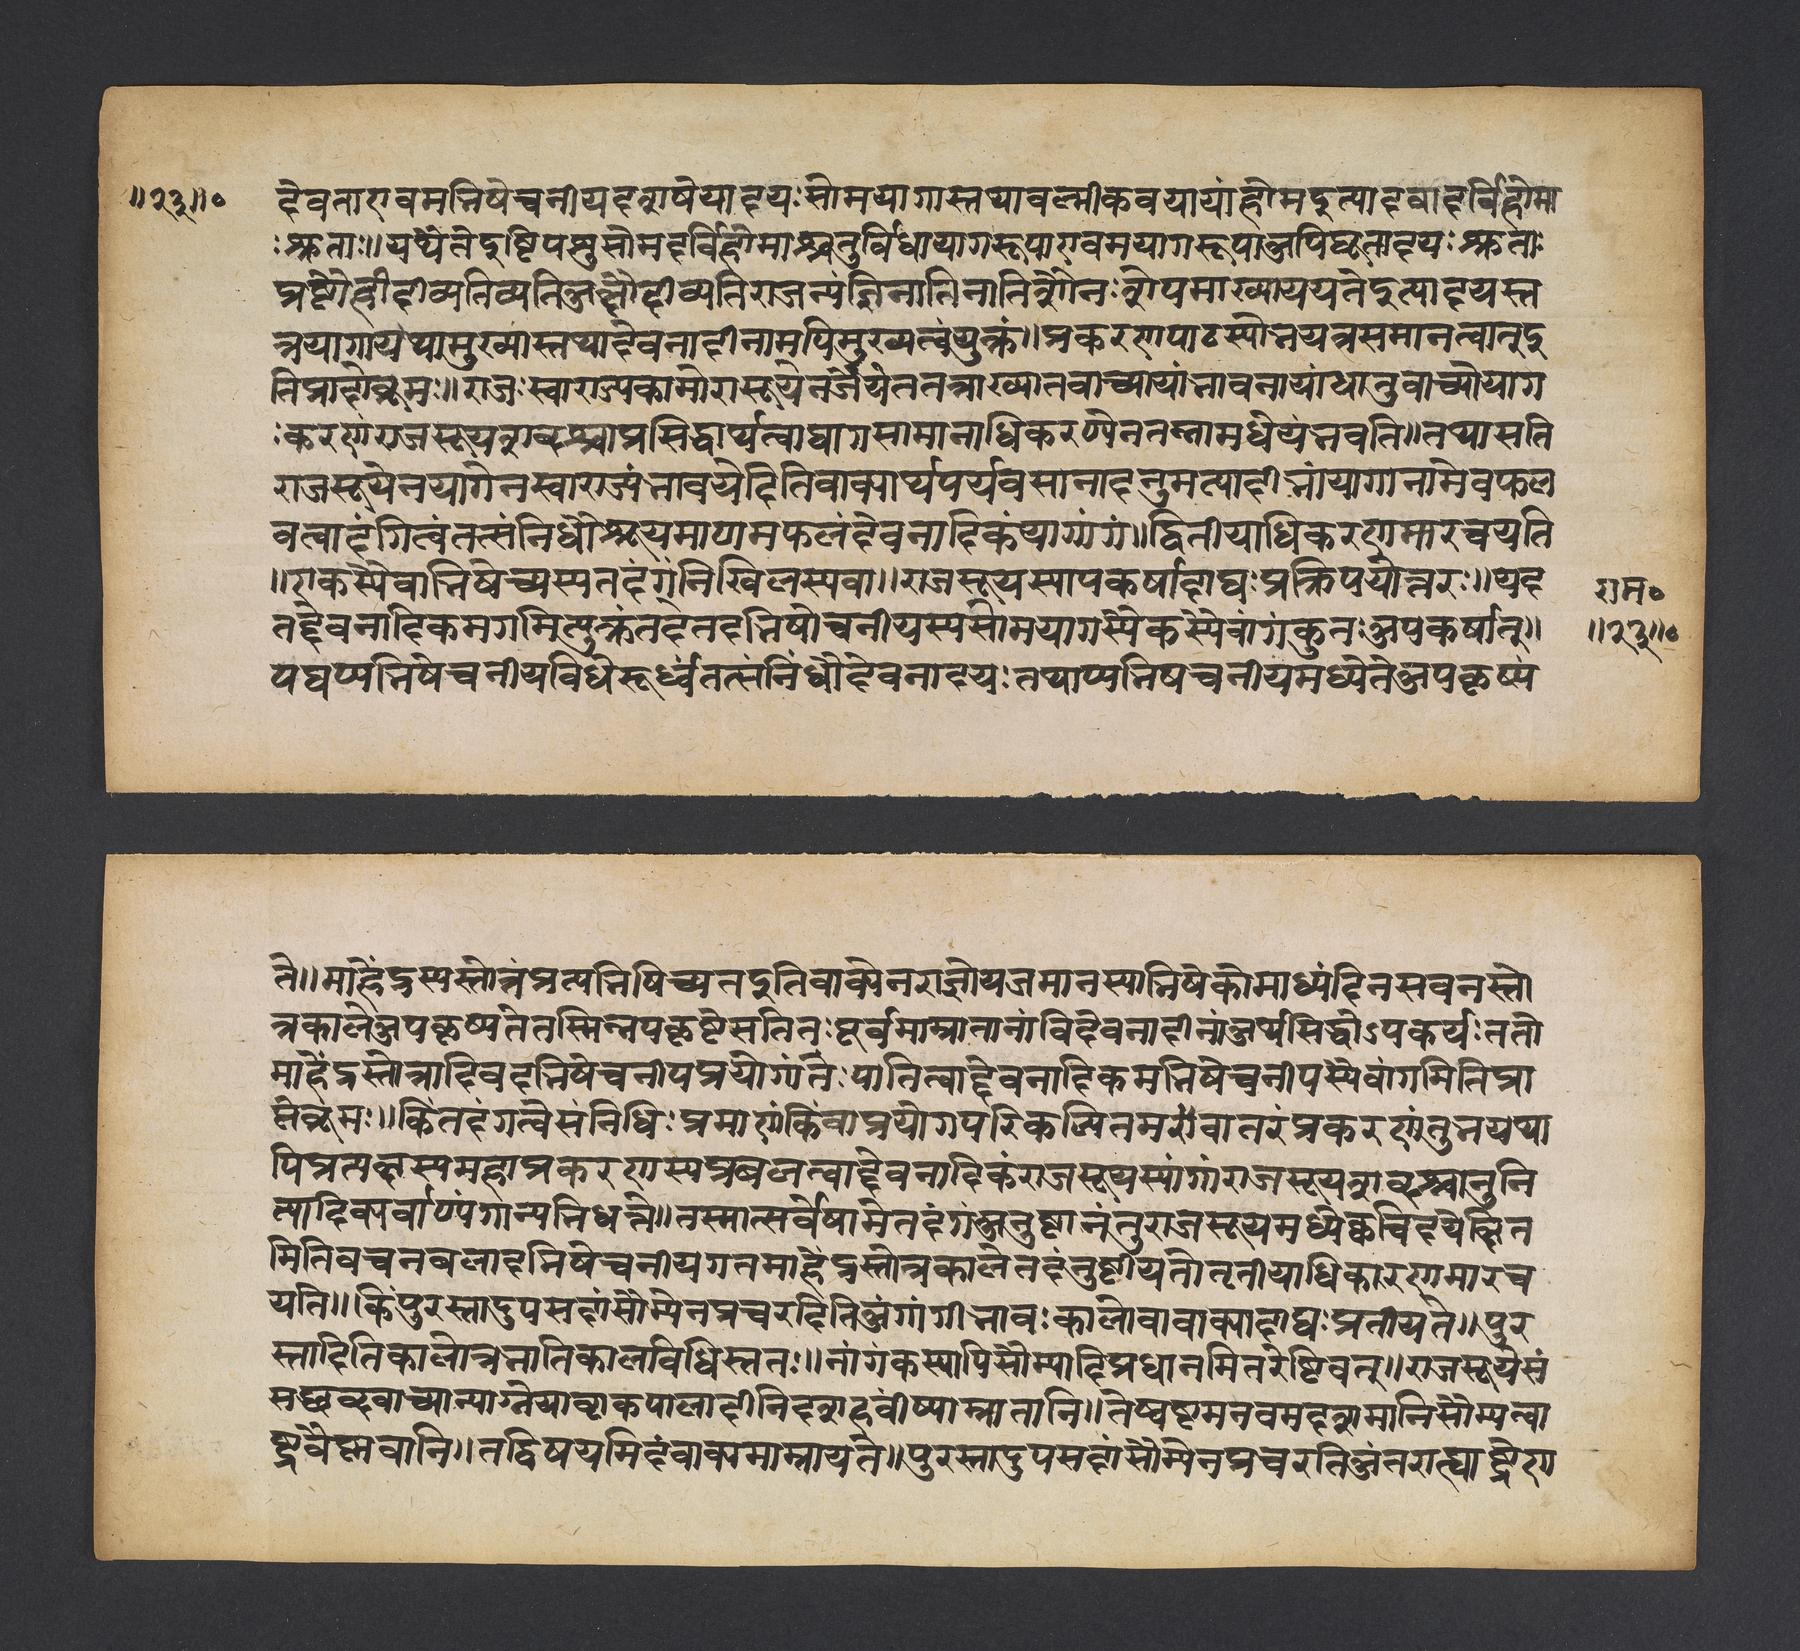 ॥२३॥०
देवताएवमभिषेचनीयदशपेयादयः सोमयागास्तथावल्मीकवपायांहोमइत्यादयादर्विहोमा
ः श्रुताः॥यथैतेइष्टिपशुसोमदर्विहोमाश्चतुर्विधायागरूपाएवमयागरूपाअपिद्यूतादयः श्रुताः
प्रष्टौहीं दीव्यतिव्यतिअक्षैर्दीव्यतिराजन्यंजिनातिनातिशौनः शेपमाख्यापयतेइत्यादयस्त
त्रयागायथामुख्यास्तथादेवनादीनामपिमुख्यत्वंयुक्तं॥प्रकरणपाठस्योभयत्रसमानत्वात्इ
तिप्राप्तेब्रूमः॥राजः स्वाराज्यकामोरासूयेनजेयेततत्राख्यातवाच्यायांभावनायांधातुवाच्योयाग
ः करणंराजसूयशब्दश्चाप्रसिद्धार्थत्वाद्यागसामानाधिकरण्येनतन्नामधेयंभवति॥तथासति
राजसूयेनयागेनस्वाराज्यंभावयेदितिवाक्यार्थपर्यवसानादनुमत्यादीनांयागानामेवफल
वत्वादंगित्वंतत्संनिधौश्रूयमाणमफलंदेवनादिकंयागांगं॥द्वितीयाधिकरणमारचयति
॥एकस्यैवाभिषेच्यस्यतदंगंनिखिलस्यवा॥राजसूयस्यापकर्षादाद्यः प्रक्रिययोत्तरः॥यद
तद्देवनादिकमगमित्युक्तंतदेतदभिषेचनीयस्यसोमयागस्यैकस्यैवांगंकुतः अपकर्षात्॥
यद्यप्यभिषेचनीयविधेरूर्ध्वंतत्संनिधौदेवनादयः तथाप्यभिषचनीयमध्येतेअपकृष्यं
राम०
॥२३॥०
ते॥माहेंद्रस्यस्तोत्रंप्रत्यभिषिच्यतइतिवाक्येनराज्ञोयजमानस्याभिषेकोमाध्यंदिनसवनस्तो
त्रकालेअपकृष्यतेतस्मिन्नपकृष्टेसतितः पूर्वमाम्नातानांविदेवनादीनांअर्थसिद्धोऽपकर्षः ततो
माहेंद्रस्तोत्रादिवदभिषेचनीयप्रयोगांतः पातित्वाद्देवनादिकमभिषेचनीयस्यैवांगमितिप्रा
प्तेब्रूमः॥किंतदंगत्वेसंनिधिः प्रमाणंकिंवाप्रयोगपरिकल्पितमवांतरंप्रकरणंतुभयथा
पिप्रत्यक्षस्यमहाप्रकरणस्यप्रबलत्वाद्देवनादिकंराजसूयस्यांगंराजसूयशब्दश्चानुनि
त्यादिक्यर्वाण्यंगान्यभिधत्ते॥तस्मात्सर्वेषामेतदंगंअनुष्ठानंतुराजसूयमध्येक्वचिदपेक्षित
मितिवचनबलादभिषेचनीयगतमाहेंद्रस्तोत्रकालेतदंनुष्ठीयतेतृतीयाधिकारणमारच
यति॥किंपुरस्तादुपसदांसौम्येनप्रचरदितिअंगांगीभावः कालोवावाक्यादाद्यः प्रतीयते॥पुर
स्तादितिकालोत्रभातिकालविधिस्ततः॥नांगंकस्यापिसौम्यादिप्रधानमितरेष्टिवत्॥राजसूयेसं
सृच्छब्दवाच्यान्याग्नेयाष्टाकपालादीनिदशहवींष्याम्नातानि॥तेष्वष्टमनवमदशमानिसौम्यत्वा
ष्ट्रवैष्णवानि॥तद्विषयमिदंवाक्यमाम्नायते॥पुरस्तादुपसदांसौम्येनप्रचरतिअंतरात्वाष्ट्रेण